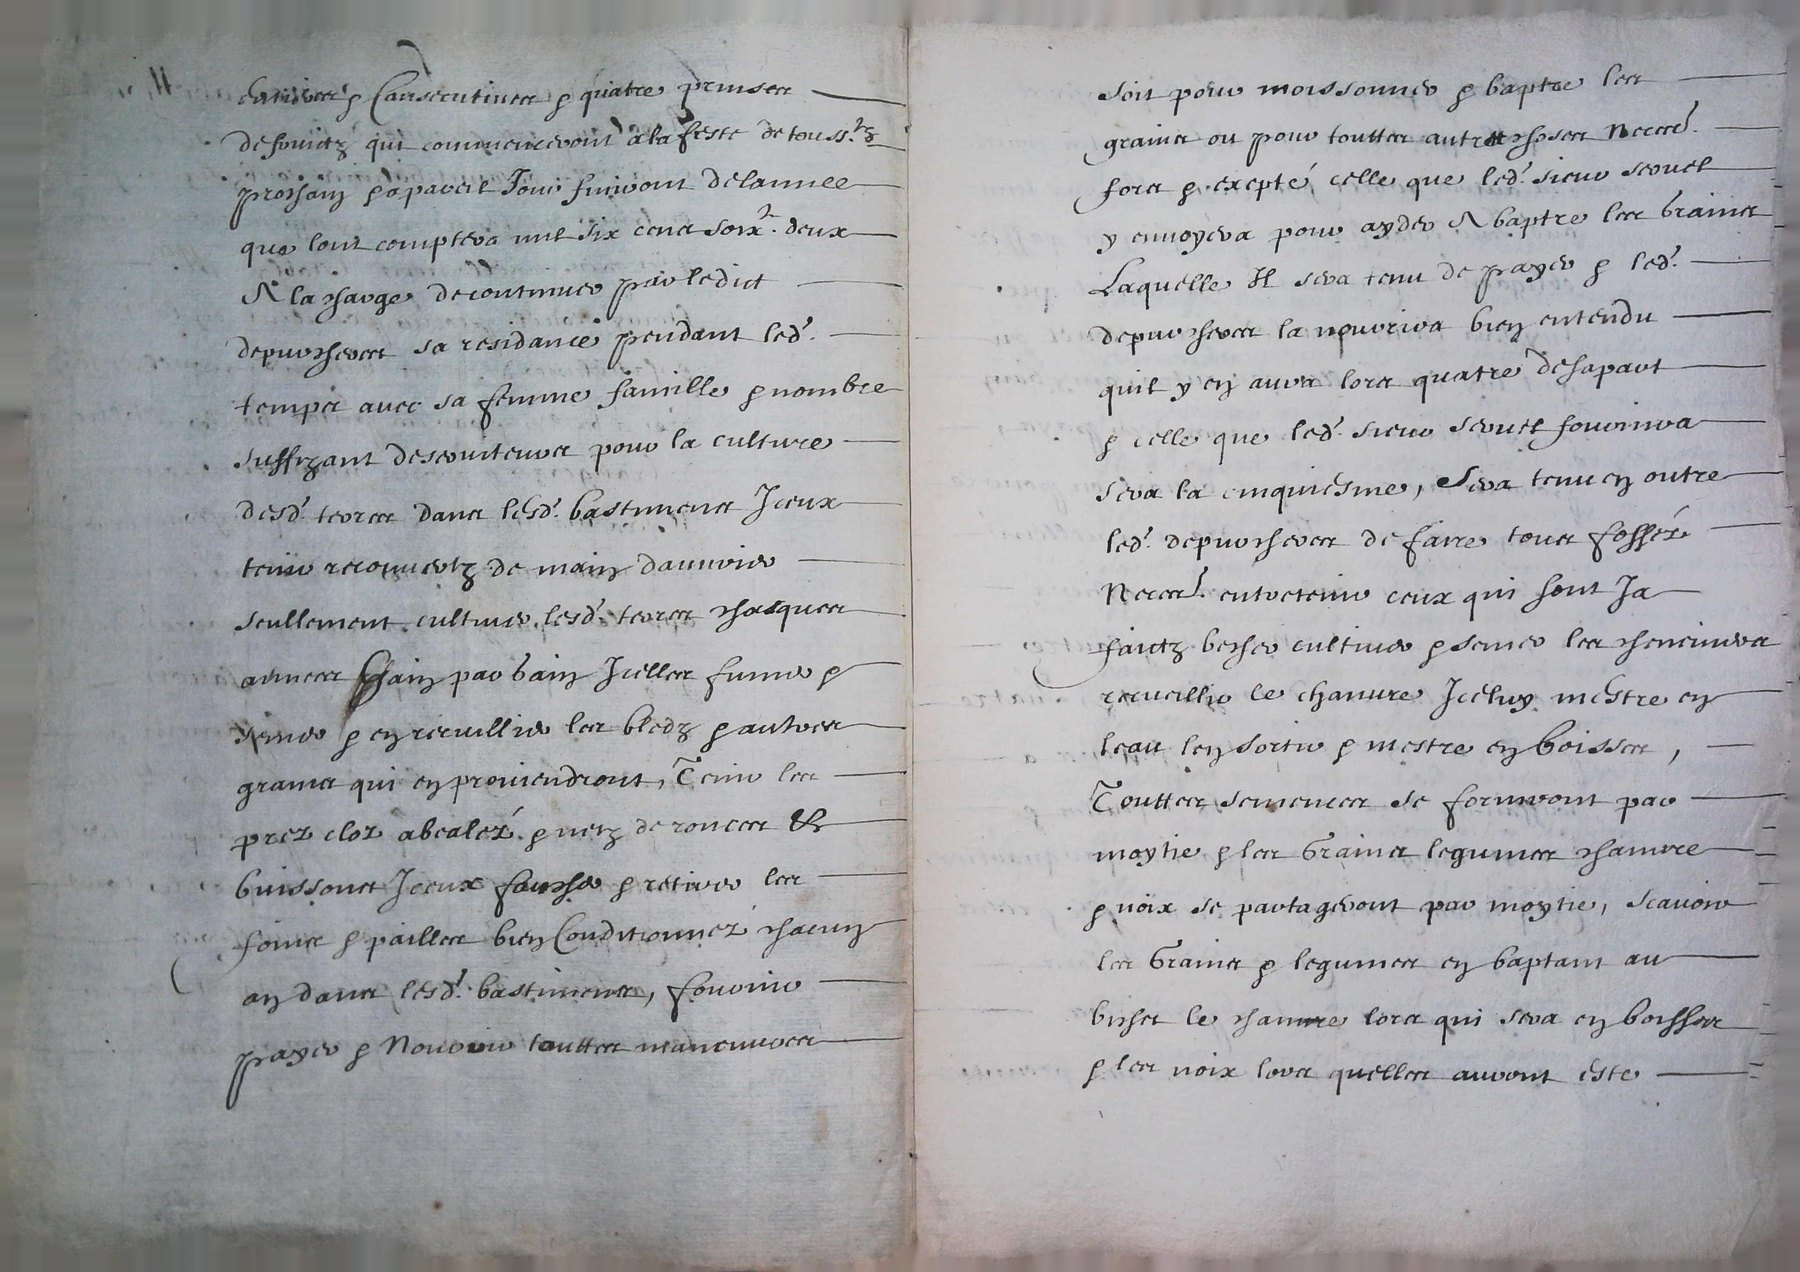 entieres & Consecutives & quatre prinses
de fruictz qui commenceront a la feste de touss.tz
prochain & a pareil Jour finiront de lannee
que lont comptera mil six cens soix.te deux
A la charge de continuer par ledict
depuicheres sa residance pendant led.
temps avec sa femme famille & nombre
suffizant de serviteurs pour la culture
desd. terres dans lesd. bastimens Iceux
tenir recouvertz de main dauvrier
seullement cultiver lesd. terres chasques
annees Gain par Gain Icelles fumer &
semer & en recuillir les bledz & autres
grains qui en proviendront, Tenir les
prez cloz abealez & netz de ronces &
buissons Iceux faucher & retirer les
foins & pailles bien Conditionnez chacun
an dans lesd. bastimens, fournir
payer & Nourrir touttes maneuvres
soit pour moissonner & baptre les
grains ou pour touttes autres choses Necess.
fors & excepté celle que led. sieur servel
y envoyera pour ayder A baptre les Grains
Laquelle Il sera tenu de payer & led.
depuicheres la nourrira bien entendu
quil y en aura lors quatre de sa part
& celle que led. sieur servel fournira
sera la cinquiesme, Sera tenu en outre
led. depuicheres de faire tous fossez
Necess. entretenir ceux qui sont Ja
faictz becher cultiver & semer les cheneveres
recueillir le chanvre Iceluy mestre en
leau len sortir & mestre en boisses,
Touttes semences se forniront par
moytie & les Grains legumes chanvre
& noix se partageront par moytie, scavoir
les Grains & legumes en baptant au
bichet le chanvre lors qui sera en boisses
& les noix lors quelles auront este